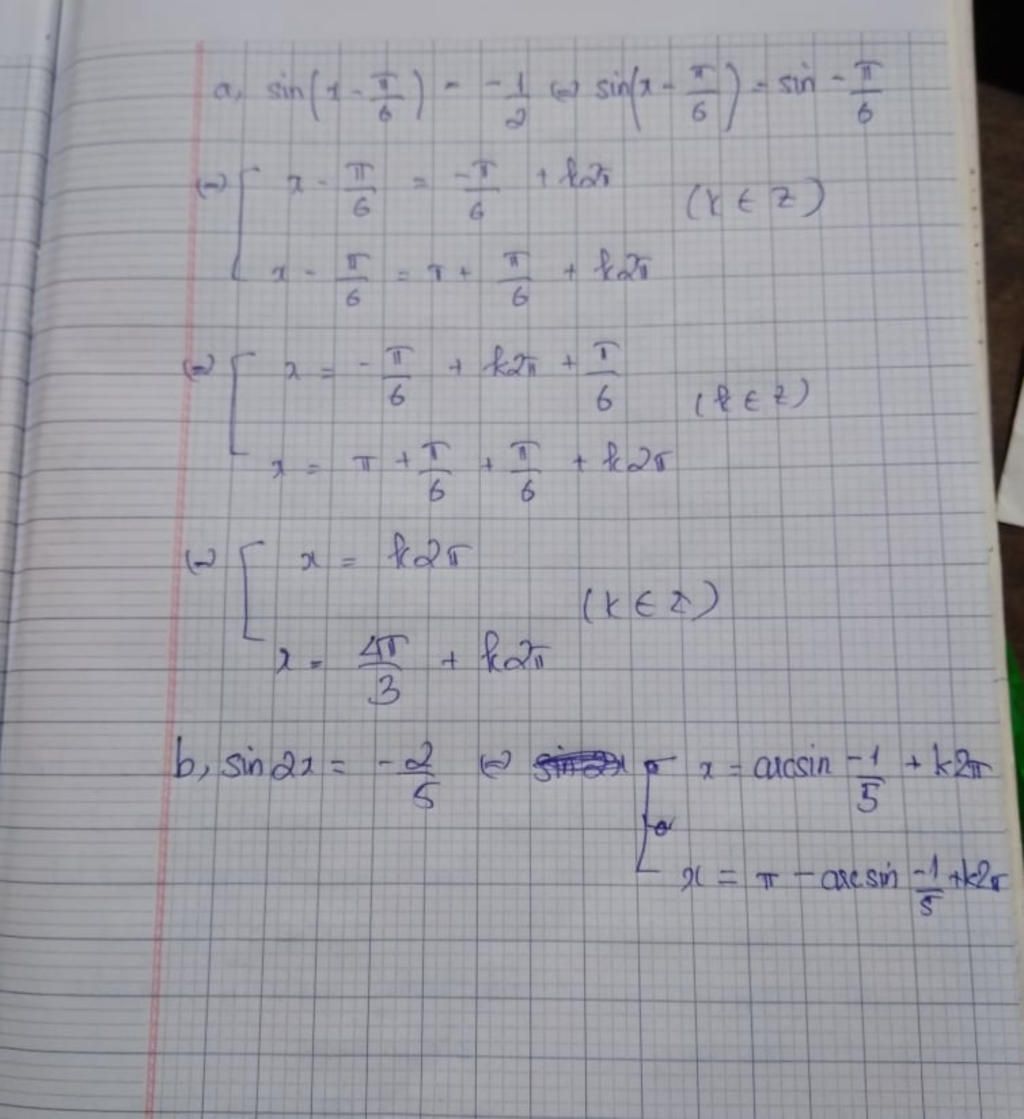 a, sin(x - π/6) = -1/2 ⇔ sin(x - π/6) = sin -π/6
⇔ [ x - π/6 = -π/6 + k2π
(k ∈ Z)
x - π/6 = π + π/6 + k2π
⇔ [ x = -π/6 + k2π + π/6
(k ∈ Z)
x = π + π/6 + π/6 + k2π
⇔ [ x = k2π
(k ∈ Z)
x = 4π/3 + k2π
b, sin2x = -2/5 ⇔ [ x = arcsin -1/5 + k2π
x = π - arcsin -1/5 + k2π